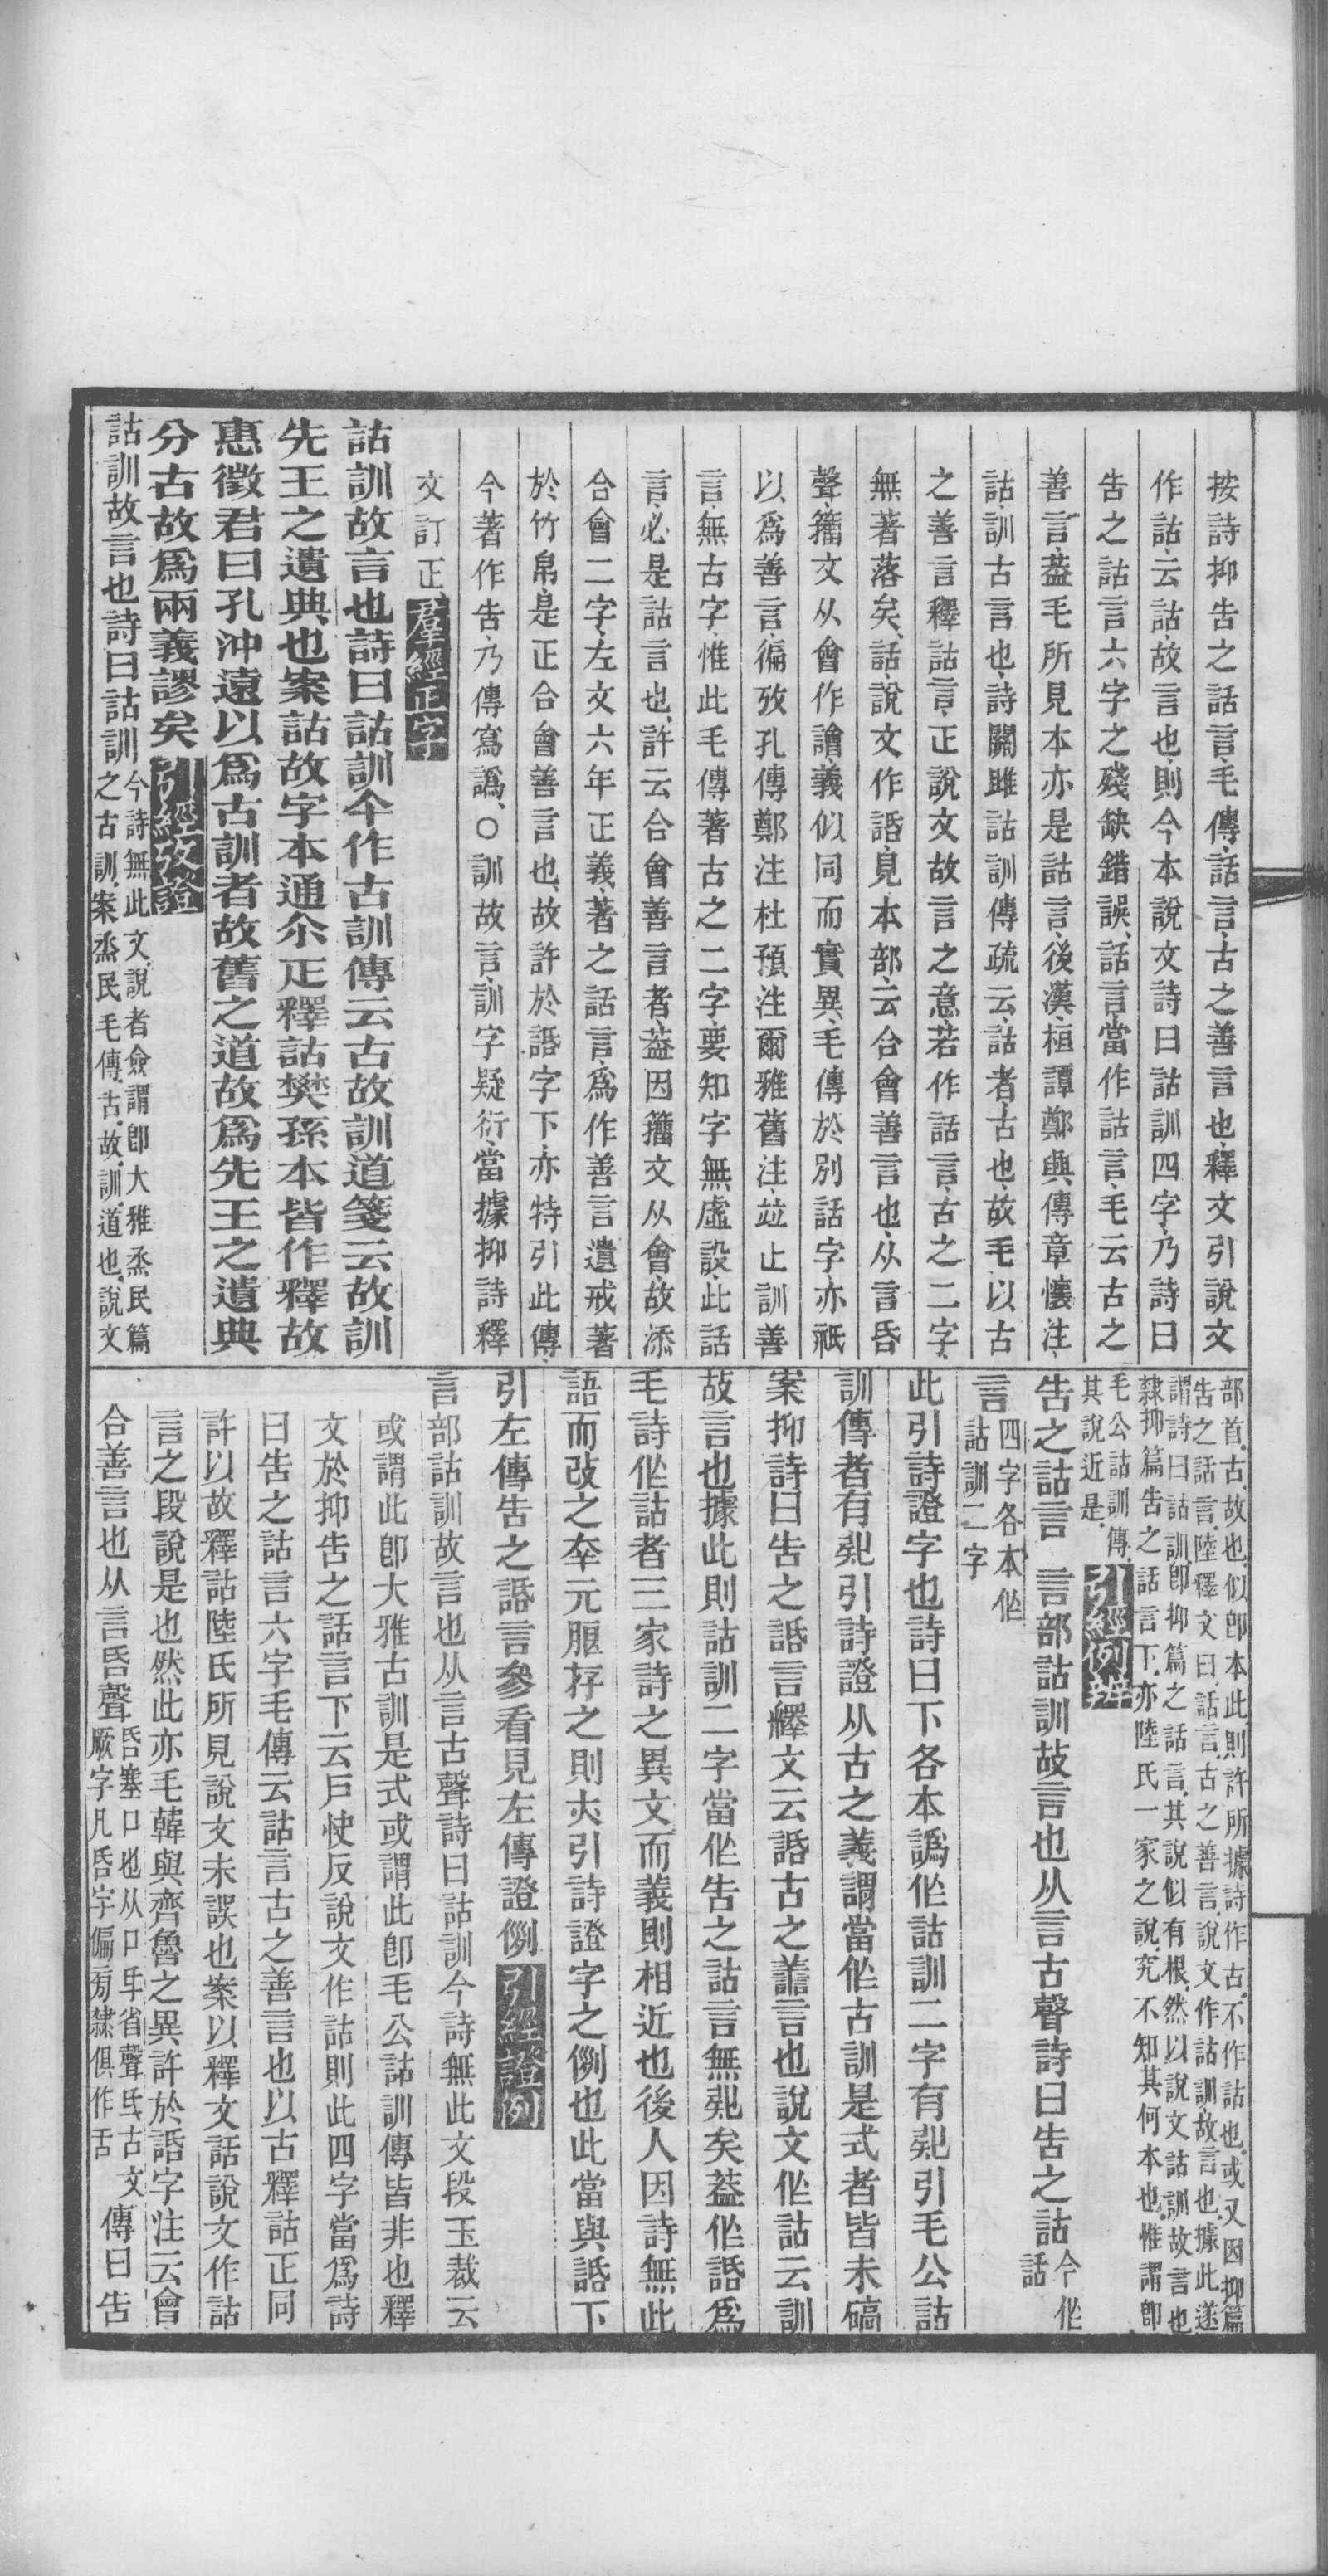 按詩抑告之話言毛傳話言古之善言也釋文引說文
作詁云詁故言也則今本說文詩曰詁訓四字乃詩曰
告之詁言六字之殘缺錯誤話言當作詁言毛云古之
善言葢毛所見本亦是詁言後漢桓譚鄭興傳章懷注
詁訓古言也詩關雎詁訓傳疏云詁者古也故毛以古
之善言釋詁言正說文故言之意若作話言古之二字
無著落矣話說文作䛡見本部云合會善言也从言昏
聲籀文从會作譮義似同而實異毛傳於別話字亦祇
以爲善言徧攷孔傳鄭注杜預注爾雅舊注竝止訓善
言無古字惟此毛傳著古之二字要知字無虛設此話
言必是詁言也許云合會善言者葢因籀文从會故添
合會二字左文六年正義著之話言爲作善言遺戒著
於竹帛是正合會善言也故許於䛡字下亦特引此傳
今著作告乃傳寫譌○訓故言訓字疑衍當據抑詩釋
文訂正羣經正字
詁訓故言也詩曰詁訓今作古訓傳云古故訓道箋云故訓
先王之遺典也案詁故字本通尒疋釋詁樊孫本皆作釋故
惠徵君曰孔沖遠以爲古訓者故舊之道故爲先王之遺典
分古故爲兩義謬矣引經攷證
詁訓故言也詩曰詁訓今詩無此文說者僉謂卽大雅烝民篇
之古訓案烝民毛傳古故訓道也說文
部首古故也似卽本此則許所據詩作古不作詁也或又因抑篇
告之話言陸釋文曰話言古之善言說文作詁訓故言也據此遂
謂詩曰詁訓卽抑篇之話言其說似有根然以說文詁訓故言也
隸抑篇告之話言下亦陸氏一家之說究不知其何本也惟謂卽
毛公詁訓傳
其說近是引經例辨
告之詁言 言部詁訓故言也从言古聲詩曰告之詁今作
話
言四字各本作
詁訓二字
此引詩證字也詩曰下各本譌作詁訓二字有謂引毛公詁
訓傳者有謂引詩證从古之義謂當作古訓是式者皆未碻
案抑詩曰告之䛡言釋文云䛡古之善言也說文作詁云訓
故言也據此則詁訓二字當作告之詁言無疑矣葢作䛡爲
毛詩作詁者三家詩之異文而義則相近也後人因詩無此
語而改之夲元服存之則夫引詩證字之例也此當與䛡下
引左傳告之䛡言參看見左傳證例引經證例
言部詁訓故言也从言古聲詩曰詁訓今詩無此文段玉裁云
或謂此卽大雅古訓是式或謂此卽毛公詁訓傳皆非也釋
文於抑告之話言下云戶快反說文作詁則此四字當爲詩
曰告之詁言六字毛傳云詁言古之善言也以古釋詁正同
許以故釋詁陸氏所見說文未誤也案以釋文話說文作詁
言之段說是也然此亦毛韓與齊魯之異許於䛡字注云會
合善言也从言昏聲昏塞口也从口氒省聲氒古文
厥字凡昏字偏旁隸俱作舌傳曰告